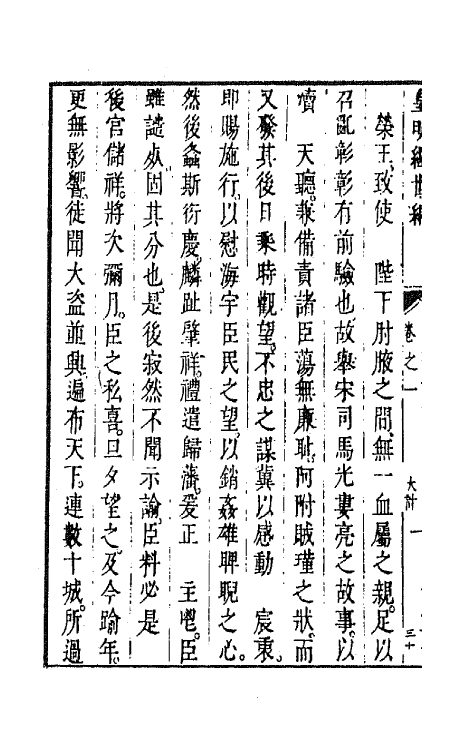 皇明經世編
卷之一
大計
一
三十
榮王、致使　陛下肘腋之間、無一血屬之親。足以
召亂彰彰有前驗也。故舉宋司馬光婁亮之故事。以
瀆　天聽。兼備責諸臣蕩無廉恥。阿附賊瑾之狀。而
又發其後日乘時觀望。不忠之謀冀以感動　宸衷。
即賜施行。以慰海宇臣民之望。以銷姦雄睥睨之心。
然後螽斯衍慶。麟趾肇祥。禮遣歸藩。爰正　主鬯。臣
雖譴死。固其分也。是後寂然不聞示諭。臣料必是
後宮儲祥。將次彌月。臣之私喜。旦夕望之。及今踰年。
更無影響。徒聞大盜並興。遍布天下。連數十城。所過